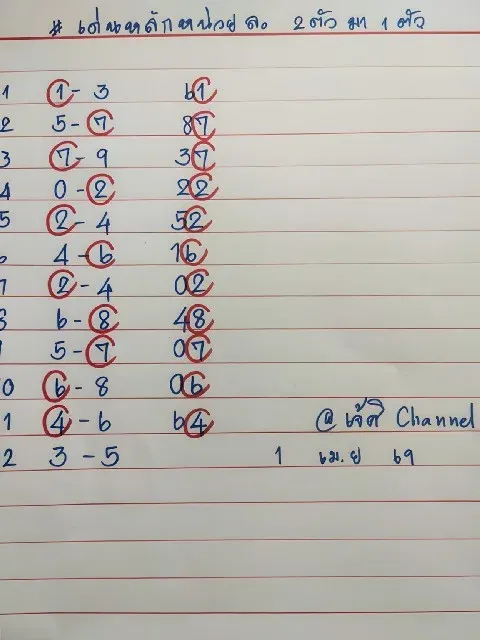 # เด่นหลักหน่วยล่าง 2 ตัว มา 1 ตัว
1 1 - 3 61
2 5 - 7 87
3 7 - 9 37
4 0 - 2 22
5 2 - 4 52
6 4 - 6 16
7 2 - 4 02
8 6 - 8 48
5 - 7 07
0 6 - 8 06
1 4 - 6 64
@ เจ๊ดี Channel
2 3 - 5 1 เม.ย 69